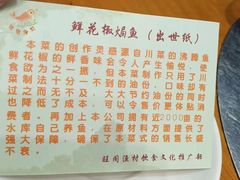 鲜花椒焗鱼（出世纸）
本菜的创作灵感源自川菜的沸腾鱼
鲜花椒的鲜香味会令人产生愉悦，使
食欲为之一振，但本菜制作只用了川
菜制法十分一不到的油份，口味却有
过之而无不及，大大降低了油份同时
也降低了成本，可以令售价更体贴消
费者。再加上本公司拥有近2000亩的
水库自己养鱼，在原材料方面提供了
强大的保障，是本菜式的销售长盛
不衰。
旺阁渔村饮食文化推广部